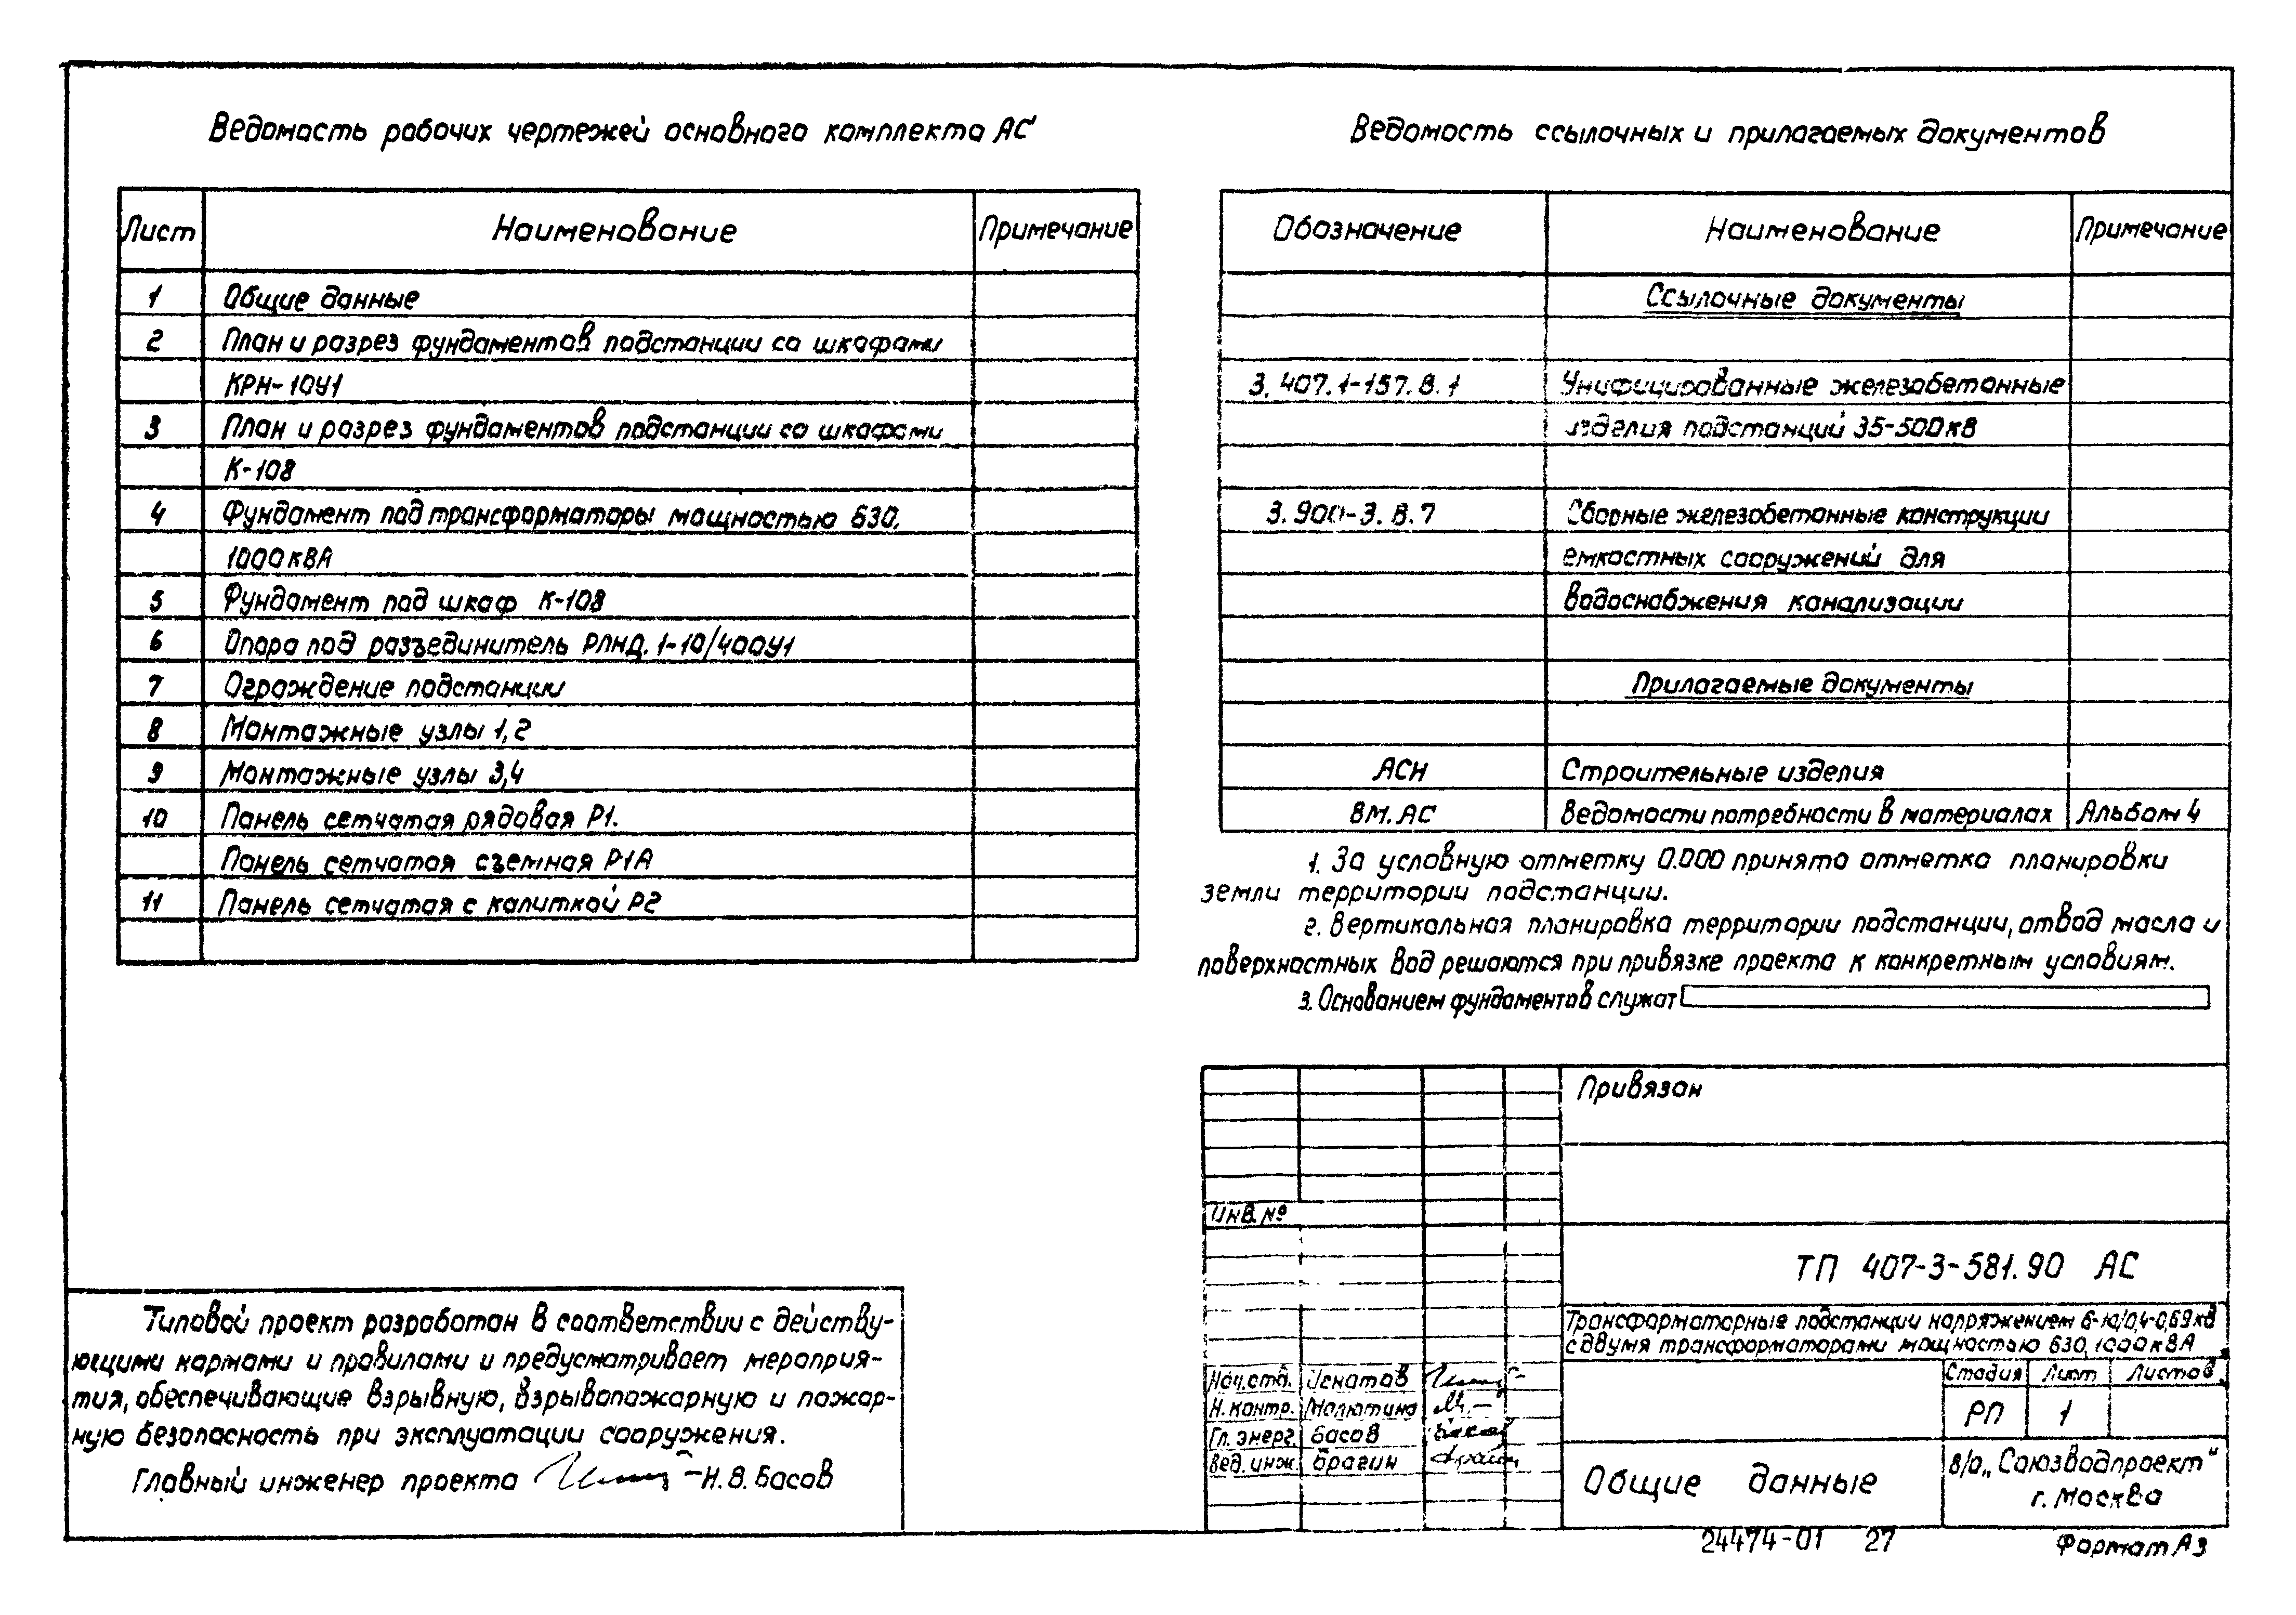 Ведомость рабочих чертежей основного комплекта АС
Лист Наименование Примечание
1 Общие данные
2 План и разрез фундаментов подстанции со шкафами
КРН-10У1
3 План и разрез фундаментов подстанции со шкафами
К-108
4 Фундамент под трансформаторы мощностью 630,
1000 кВА
5 Фундамент под шкаф К-108
6 Опора под разъединитель РЛНД.1-10/400У1
7 Ограждение подстанции
8 Монтажные узлы 1,2
9 Монтажные узлы 3,4
10 Панель сетчатая рядовая Р1.
Панель сетчатая съемная Р1А
11 Панель сетчатая с калиткой Р2
Ведомость ссылочных и прилагаемых документов
Обозначение Наименование Примечание
Ссылочные документы
3.407.1-157.В.1 Унифицированные железобетонные
изделия подстанций 35-500кВ
3.900-3.В.7 Сборные железобетонные конструкции
емкостных сооружений для
водоснабжения канализации
Прилагаемые документы
АСН Строительные изделия
ВМ.АС Ведомости потребности в материалах Альбом 4
1. За условную отметку 0.000 принята отметка планировки
земли территории подстанции.
2. Вертикальная планировка территории подстанции, отвод масла и
поверхностных вод решаются при привязке проекта к конкретным условиям.
3. Основанием фундаментов служат
Типовой проект разработан в соответствии с действу-
ющими нормами и правилами и предусматривает мероприя-
тия, обеспечивающие взрывную, взрывопожарную и пожар-
ную безопасность при эксплуатации сооружения.
Главный инженер проекта Н.В.Басов
Привязан
Инв.№
ТП 407-3-581.90 АС
Трансформаторные подстанции напряжением 6-10/0,4-0,69кВ
с двумя трансформаторами мощностью 630, 1000кВА
Нач.отд. Игнатов
Н.контр. Малютина
Гл.энерг. Басов
Вед.инж. Брагин
Стадия Лист Листов
РП 1
Общие данные
В/О „Союзводпроект"
г. Москва
24474-01 27
Формат А3